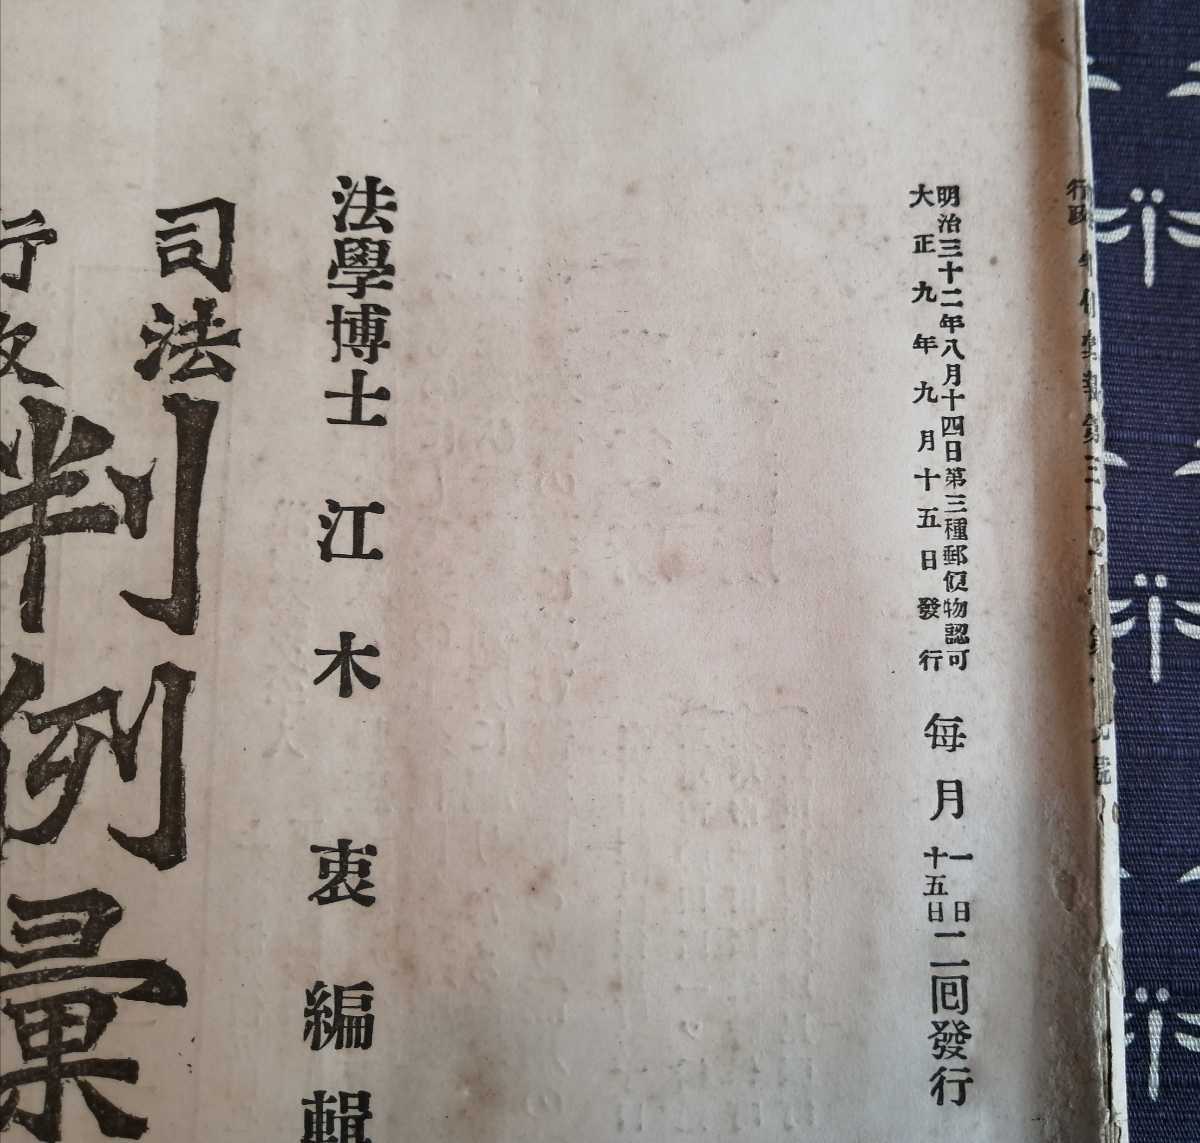 明治三十二年八月十四日第三種郵便物認可
大正九年九月十五日發行
每月一日十五日二回發行
法學博士 江木衷編輯
司法
行政
判例彙